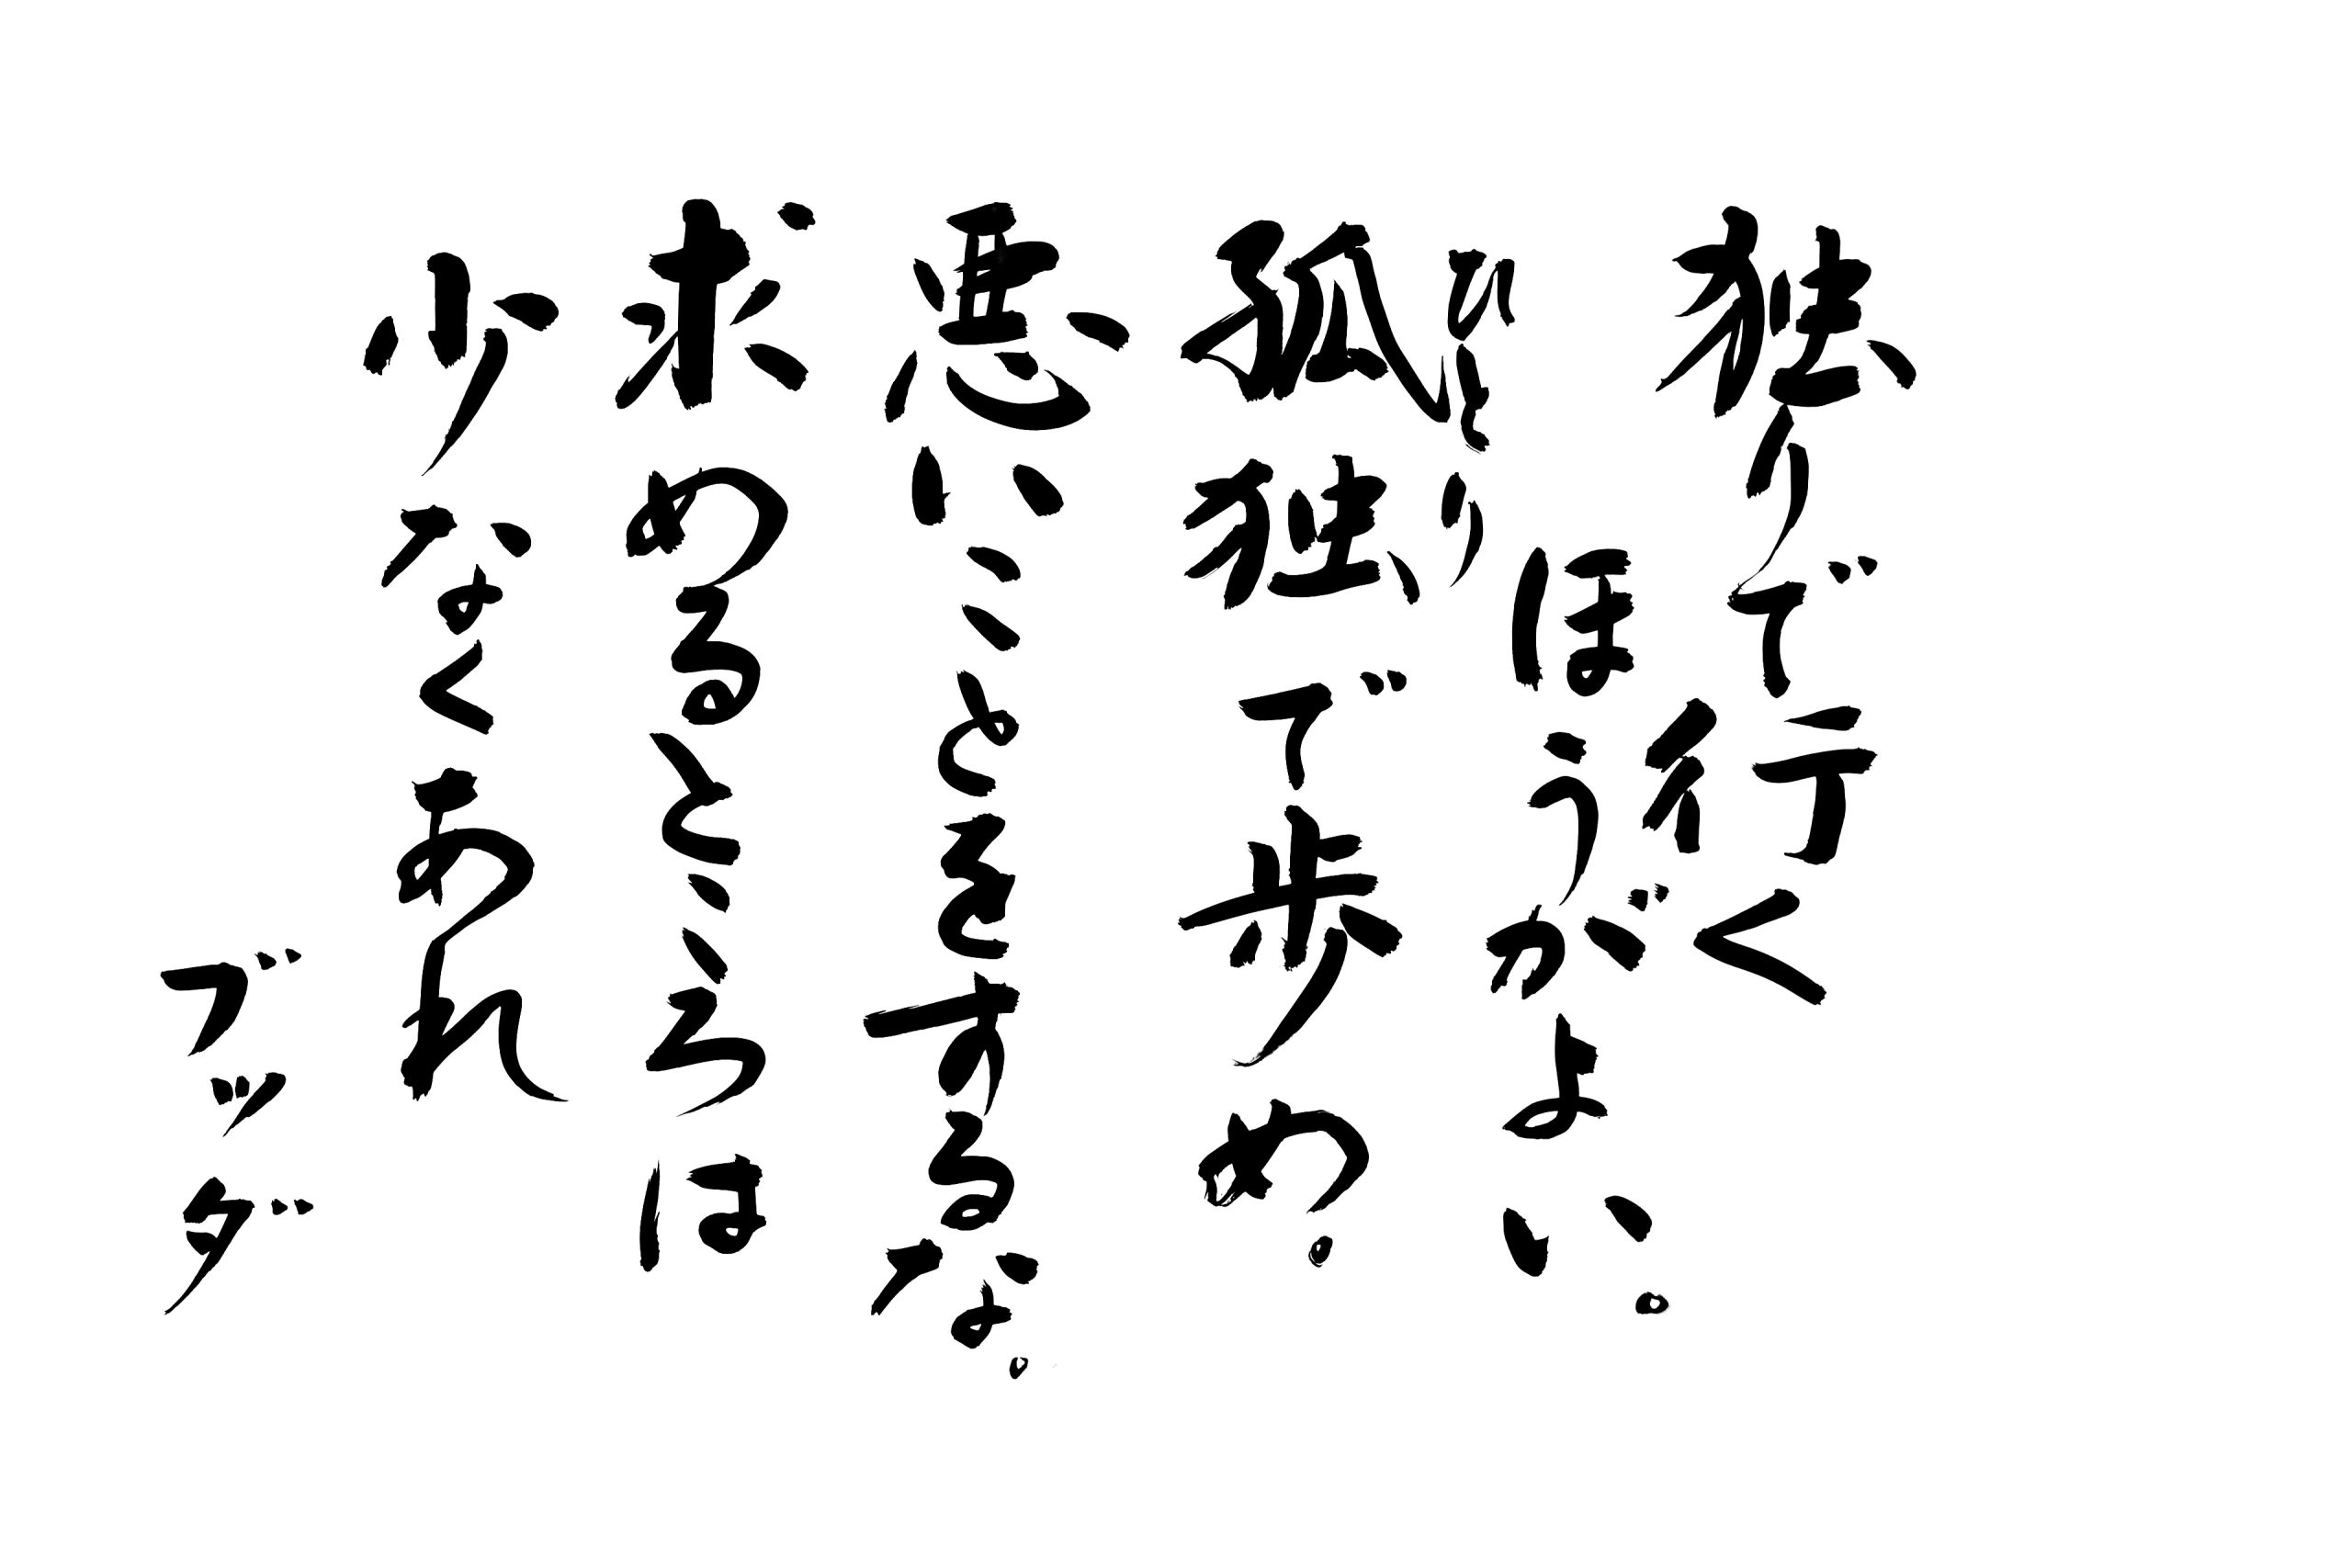 独りで行く
ほうがよい。
ひとり
孤独で歩め。
悪いことをするな。
求めるところは
少なくあれ
ブッダ